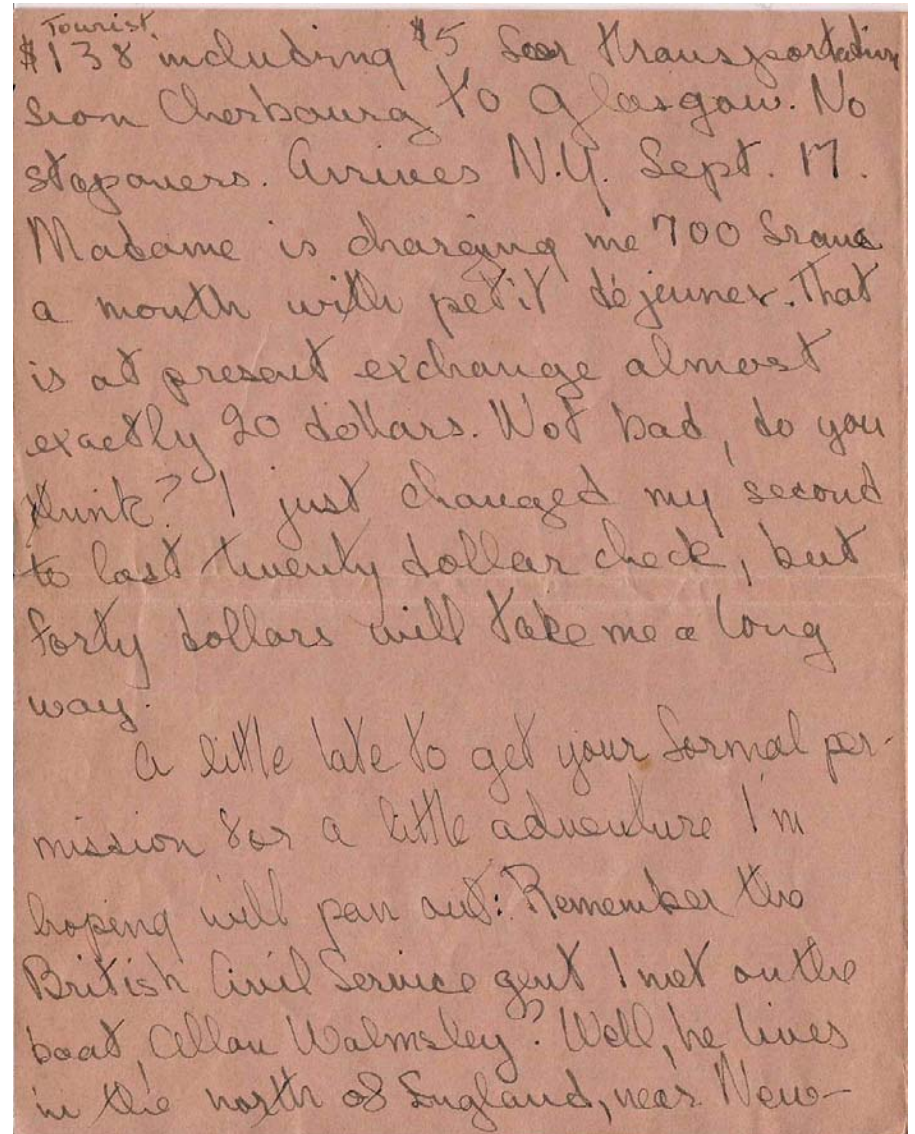 Tourist
$138 including $5 for transportation
from Cherbourg to Glasgow. No
stopovers. Arrives N.Y. Sept. 17.
Madame is charging me 700 francs
a month with petit déjeuner. That
is at present exchange almost
exactly 20 dollars. Not bad, do you
think? I just changed my second
to last twenty dollar check, but
forty dollars will take me a long
way.
A little late to get your formal per-
mission for a little adventure I'm
hoping will pan out: Remember the
British Civil Service gent I met on the
boat, Allan Walmsley? Well, he lives
in the north of England, near New-